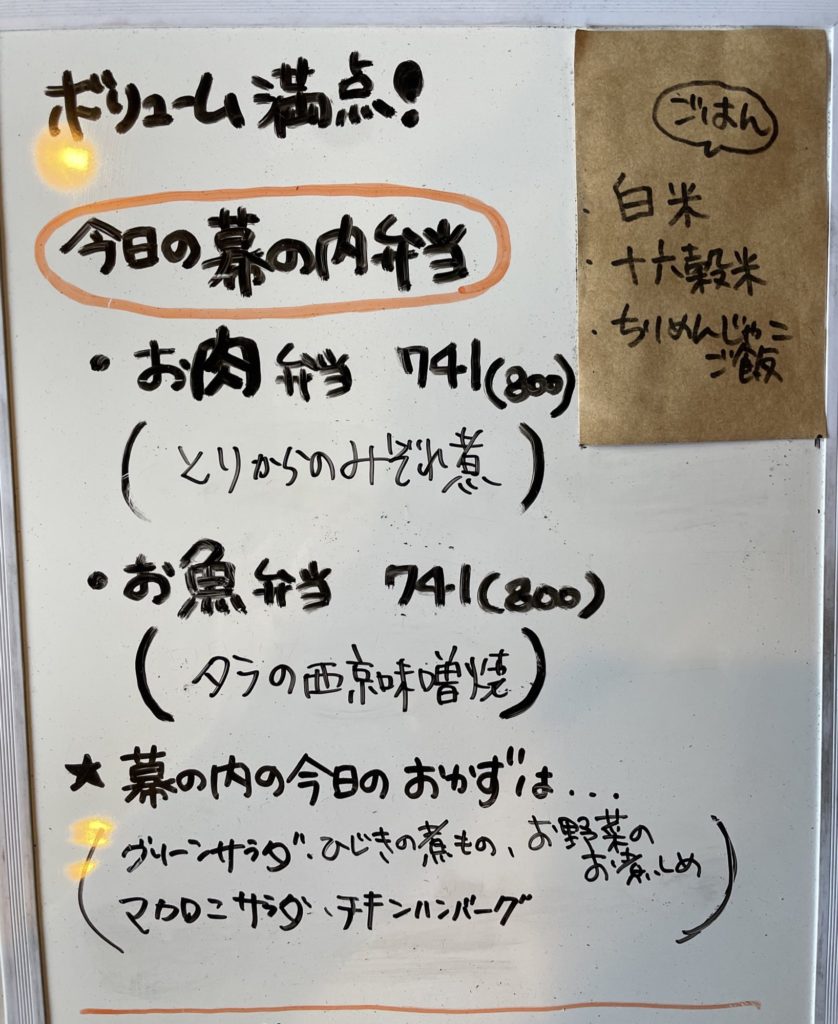 ボリューム満点!
今日の幕の内弁当
・お肉弁当 741(800)
(とりからのみぞれ煮)
・お魚弁当 741(800)
(タラの西京味噌焼)
★幕の内の今日のおかずは...
(グリーンサラダ、ひじきの煮もの、お野菜の
お煮しめ
マカロニサラダ、チキンハンバーグ)
ごはん
・白米
・十六穀米
・ちりめんじゃこ
ご飯